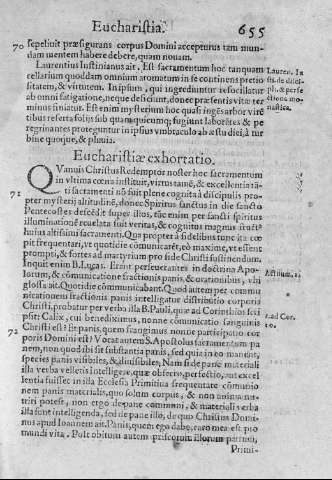 Eucharistia. 655
70 sepeliuit præfigurans corpus Domini accepturus tam mun-
dam mentem habere debere, quam nouam.
Laurentius Iustinianus ait. Est sacramentum hoc tanquam
cellarium quoddam omnium aromatum in se continens pretio
sitatem, & virtutem. In ipsum, qui ingrediuntur refocillatur
ab omni fatigatione, neque deficiunt, donec præsentis vitæ ter
minus finiatur. Est enim mysterium hoc quasi ingēs arbor viri
tibus referta folijs sub quam quicumq; fugiunt laborātes & pe
regrinantes proteguntur in ipsius vmbraculo ab æstu diei, à tur
bine quoque, & pluuia.
Lauren. Iu
sti. de discip
pli. & perfe
ctione mo-
nastica.
Eucharistiæ exhortatio.
QVamuis Christus Redemptor noster hoc sacramentum
in vltima cœna instituit, virtus tamē, & excellentia tā-
71 ti sacramenti nō fuit plene cognita à discipulis pro-
pter mysterij altitudinē, donec Spiritus sanctus in die sancto
Pentecostes descēdit super illos, tūc enim per sancti spiritus
illuminationē reuelata fuit veritas, & cognitus magnus
huius altissimi sacramenti. Qua propter à fidelibus tunc
it frequentari, vt quotidie cōmunicarēt, eò maxime, vt essent
prompti, & fortes ad martyrium pro side Christi sustinendum.
Inquit enim B. Lucas. Erant perseuerates in doctrina Apo-
lorum, & cōmunicatione fractionis panis, & orationibus, vbi
glossa ait. Quotidie cōmunicabant. Quod autem per commu
nicationem fractionis panis intelligatur distributio corporis
Christi, probatur per verba illa B. Pauli, quæ ad Corinthios
psit: Calix, cui benedicimus, nonne cōmunicatio sanguinis
72 Christi est? Et panis, quem frangimus nonne participatio cor
poris Domini est? Vocat autem S. Apostolus sacramentum pa
nem, non quod ibi sit substantia panis, sed quia in eo manent
species panis visibiles, & diuisibiles. Nam si de pane materiali
illa verba velletis intelligere, quæ obsecro, perfectio, aut excel
lentia fuisset in illa Ecclesia Primitiua frequentare cōmunio
nem panis materialis, quo solum corpus, & non anima nu-
triri potest, non ergo de pane cōmuni, & materiali verba
illa sunt intelligenda, sed de pane illo, de quo Christus Domi-
nus apud Ioannem ait. Panis, quem ego dabo, caro mea est pro
mundi vita. Post obitum autem priscorum illorum patrum,
Actuum. 2.
1. ad Cor.
10.
Primi-